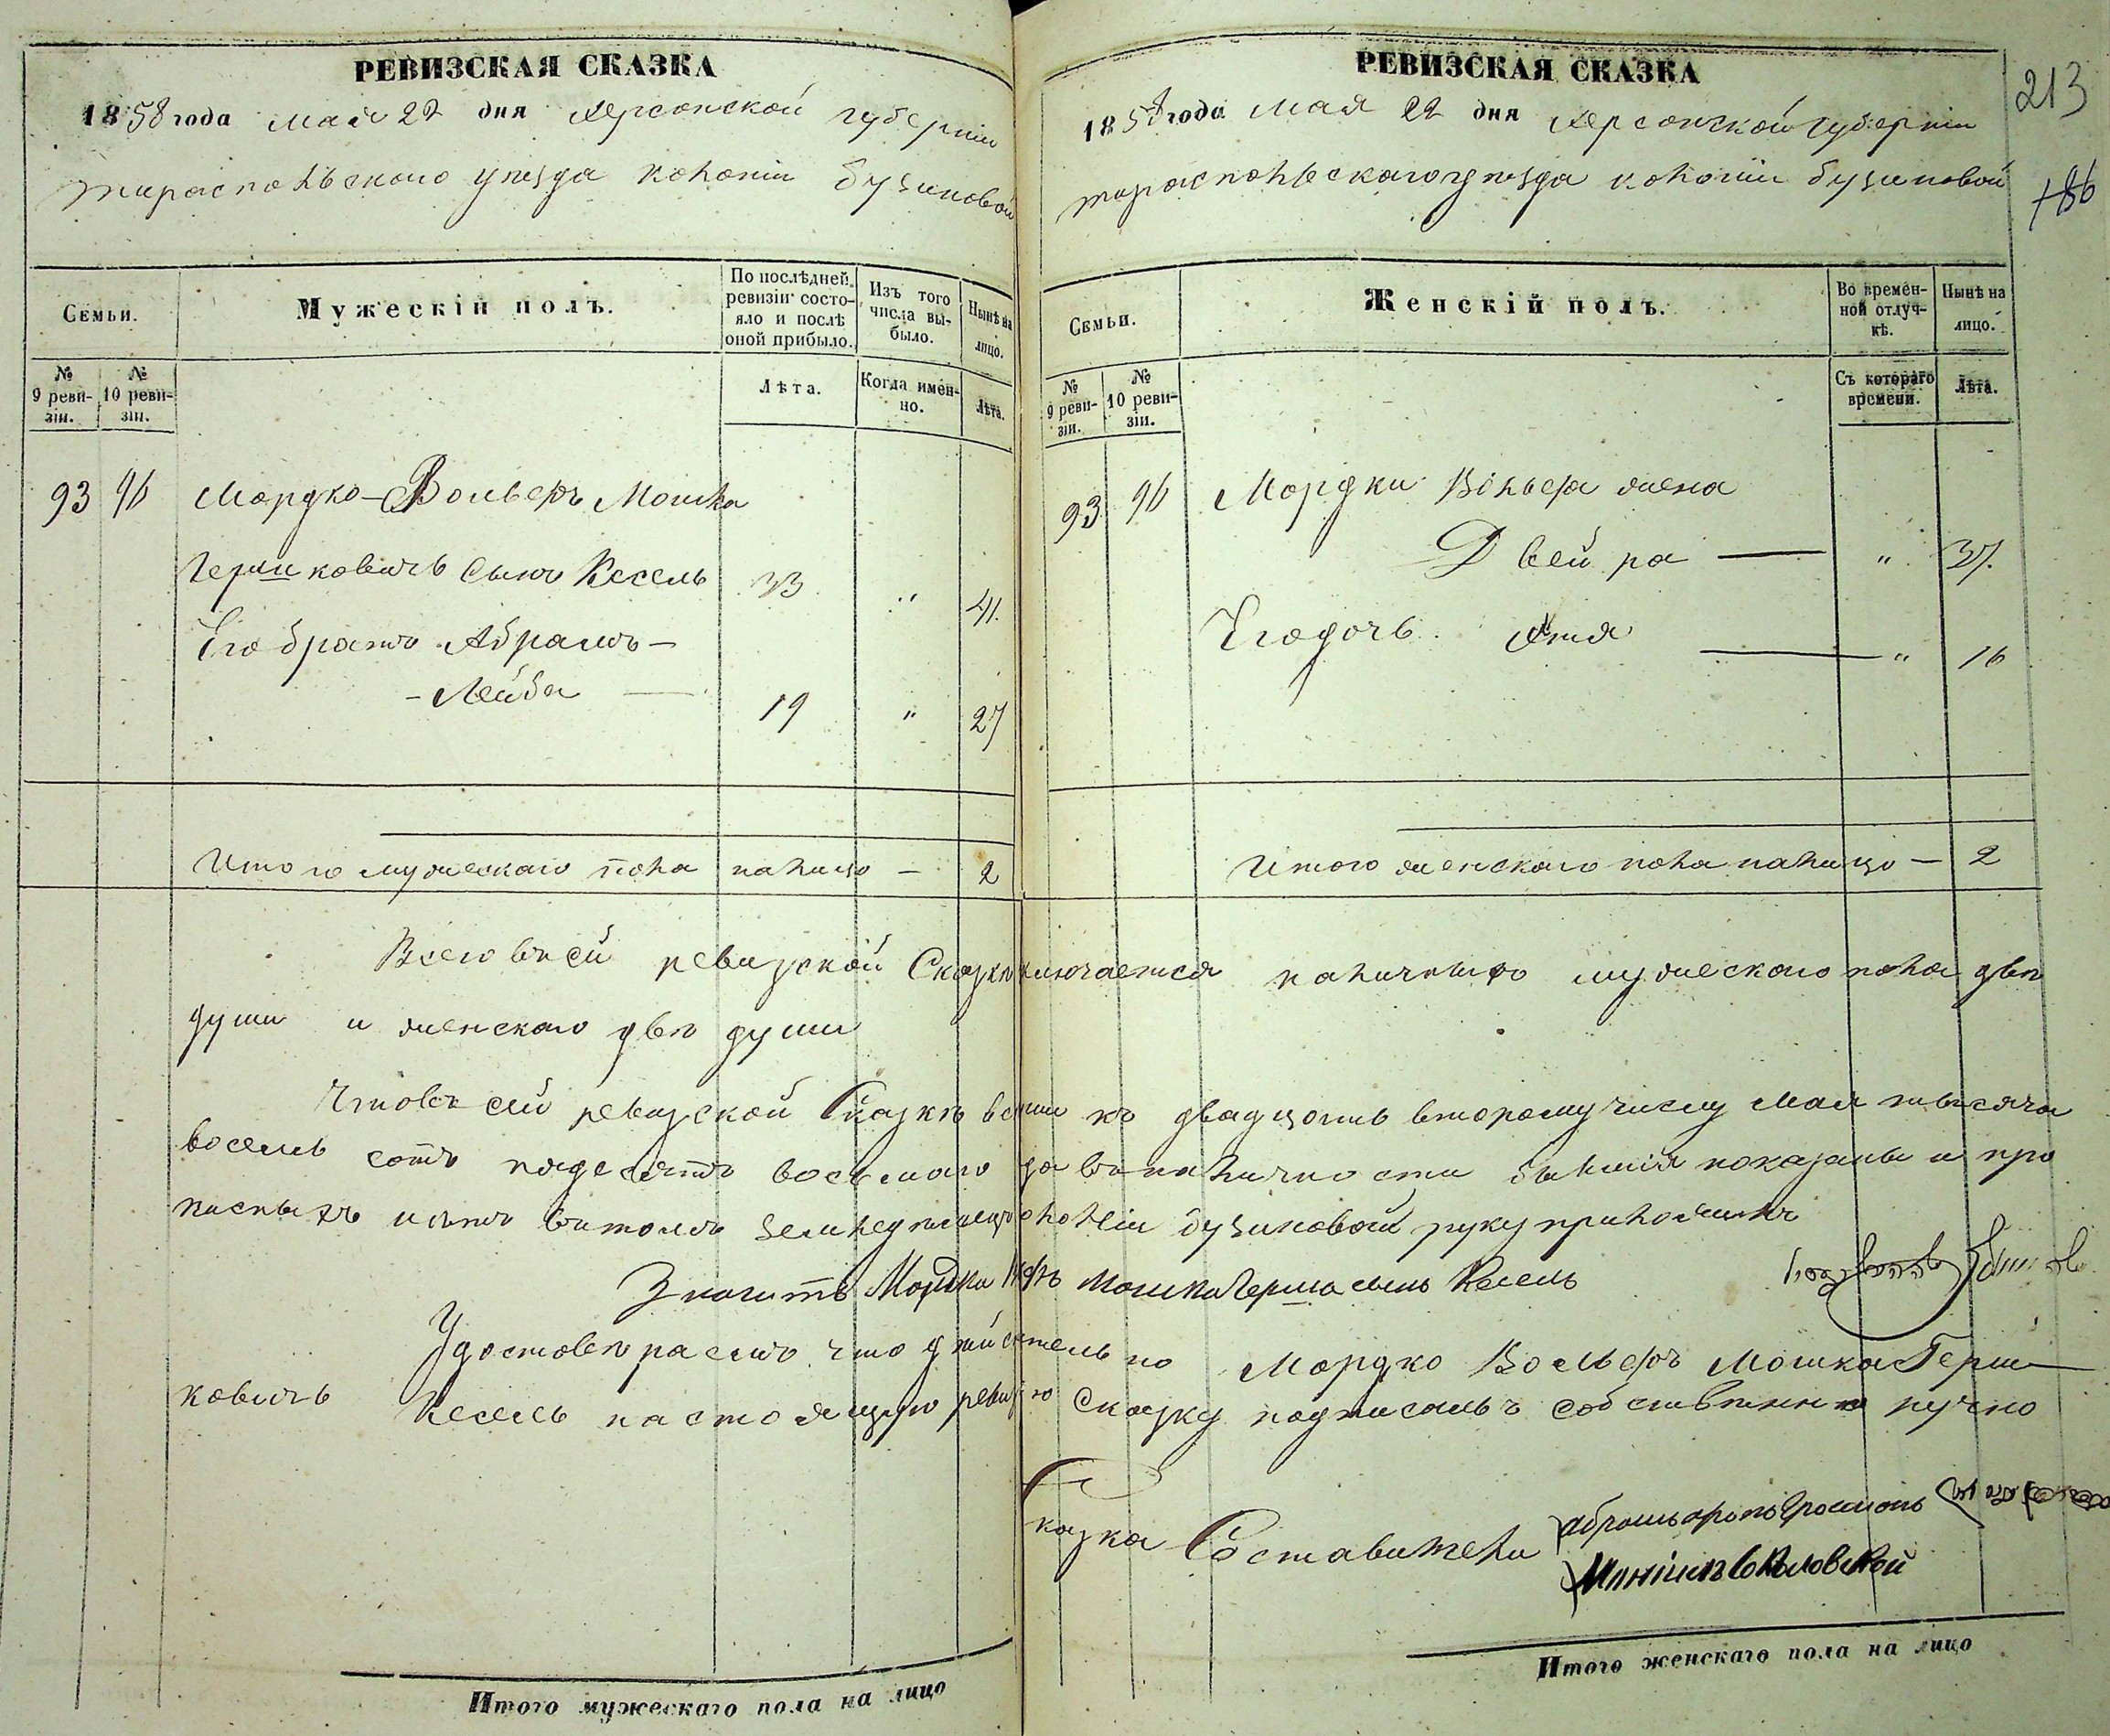 РЕВИЗСКАЯ СКАЗКА
1858 года мая 22 дня Херсонской губернии
тираспольскаго уезда колонии бузиновой
Семьи.
Мужескій полъ.
По послѣдней ревизіи состояло и послѣ оной прибыло.
Изъ того числа выбыло.
Нынѣ на лицо.
№ 9 ревизіи.
№ 10 ревизіи.
Лѣта.
Когда именно.
Лѣта.
93 96 Мордко-Вольфъ Мошка
Гершковичъ сынъ Кесель 33 " 41.
Его братъ Абрамъ-
-Лейба — 19 " 27
Итого мужескаго пола налицо — 2
РЕВИЗСКАЯ СКАЗКА
213
1858 года мая 22 дня Херсонской губернии
тираспольскаго уезда колонии бузиновой
186
Семьи.
Женскій полъ.
Во временной отлучкѣ.
Нынѣ на лицо.
№ 9 ревизіи.
№ 10 ревизіи.
Съ котораго времени.
Лѣта.
93 96 Мордки Вольфа жена
Двейра — " 37.
Его дочь — " 16
Итого женскаго пола налицо — 2
Всего въ сей ревизской Сказке заключается мужескаго пола две
души и женскаго две души
Что въ сей ревизской Сказке все къ двадцать второму числу Мая тысяча
восемь сотъ пядесятъ восьмаго года въ наличности бывшія показаны и про
писныхъ нетъ въ томъ колоніи бузиновой руку приложилъ
Значитъ Мордко Вольфъ Мошка Герша сынъ Кесель
Удостоверяемъ что действительно Мордко Вольфъ Мошка Герш
ковичъ Кесель настоящую ревизскую Сказку подписалъ собственно ручно
Сказка Составители
Итого мужескаго пола на лицо
Итого женскаго пола на лицо